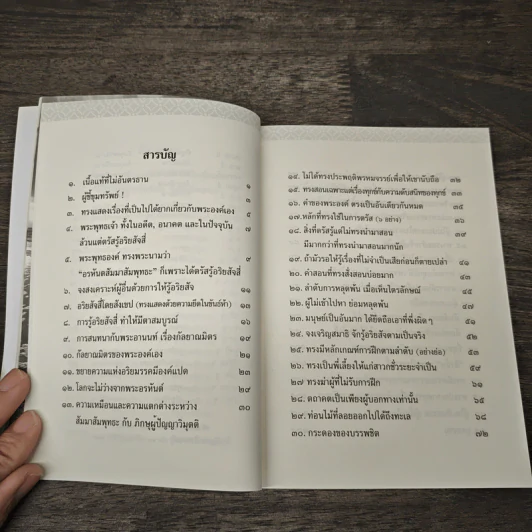 สารบัญ
๑. เนื้อแท้ที่ไม่อันตรธาน ๑
๒. ผู้ชี้ขุมทรัพย์ ! ๒
๓. ทรงแสดงเรื่องที่เป็นไปได้ยากเกี่ยวกับพระองค์เอง ๕
๔. พระพุทธเจ้า ทั้งในอดีต, อนาคต และในปัจจุบัน ๗
ล้วนแต่ตรัสรู้อริยสัจสี่
๕. พระพุทธองค์ ทรงพระนามว่า ๙
"อรหันตสัมมาสัมพุทธะ" ก็เพราะได้ตรัสรู้อริยสัจสี่
๖. จงสงเคราะห์ผู้อื่นด้วยการให้รู้อริยสัจ ๑๑
๗. อริยสัจสี่โดยสังเขป (ทรงแสดงด้วยความยึดในขันธ์ห้า) ๑๓
๘. การรู้อริยสัจสี่ ทำให้มีตาสมบูรณ์ ๑๖
๙. การสนทนากับพระอานนท์ เรื่องกัลยาณมิตร ๑๙
๑๐. กัลยาณมิตรของพระองค์เอง ๒๑
๑๑. ขยายความแห่งอริยมรรคมีองค์แปด ๒๓
๑๒. โลกจะไม่ว่างจากพระอรหันต์ ๒๙
๑๓. ความเหมือนและความแตกต่างระหว่าง ๓๐
สัมมาสัมพุทธะ กับ ภิกษุผู้ปัญญาวิมุตติ
๑๔. ไม่ได้ทรงประพฤติพรหมจรรย์เพื่อให้เขานับถือ ๓๒
๑๕. ทรงสอนเฉพาะแต่เรื่องทุกข์กับความดับสนิทของทุกข์ ๓๓
๑๖. คำของพระองค์ ตรงเป็นอันเดียวกันหมด ๓๕
๑๗. หลักที่ทรงใช้ในการตรัส (๖ อย่าง) ๓๖
๑๘. สิ่งที่ตรัสรู้แต่ไม่ทรงนำมาสอน ๓๙
มีมากกว่าที่ทรงนำมาสอนมากนัก
๑๙. ถ้ามัวรอให้รู้เรื่องที่ไม่จำเป็นเสียก่อนก็ตายเปล่า ๔๑
๒๐. คำสอนที่ทรงสั่งสอนบ่อยมาก ๔๓
๒๑. ลำดับการหลุดพ้น เมื่อเห็นไตรลักษณ์ ๔๕
๒๒. ผู้ไม่เข้าไปหา ย่อมหลุดพ้น ๔๗
๒๓. มนุษย์เป็นอันมาก ได้ยึดถือเอาที่พึ่งผิดๆ ๔๙
๒๔. จงเจริญสมาธิ จักรู้อริยสัจตามเป็นจริง ๕๑
๒๕. ทรงมีหลักเกณฑ์การฝึกตามลำดับ (อย่างย่อ) ๕๓
๒๖. ทรงเป็นพี่เลี้ยงให้แก่สาวกชั่วระยะจำเป็น ๕๙
๒๗. ทรงฆ่าผู้ที่ไม่รับการฝึก ๖๑
๒๘. ตถาคตเป็นเพียงผู้บอกทางเท่านั้น ๖๕
๒๙. ท่อนไม้ที่ลอยออกไปได้ถึงทะเล ๖๘
๓๐. กระดองของบรรพชิต ๗๒